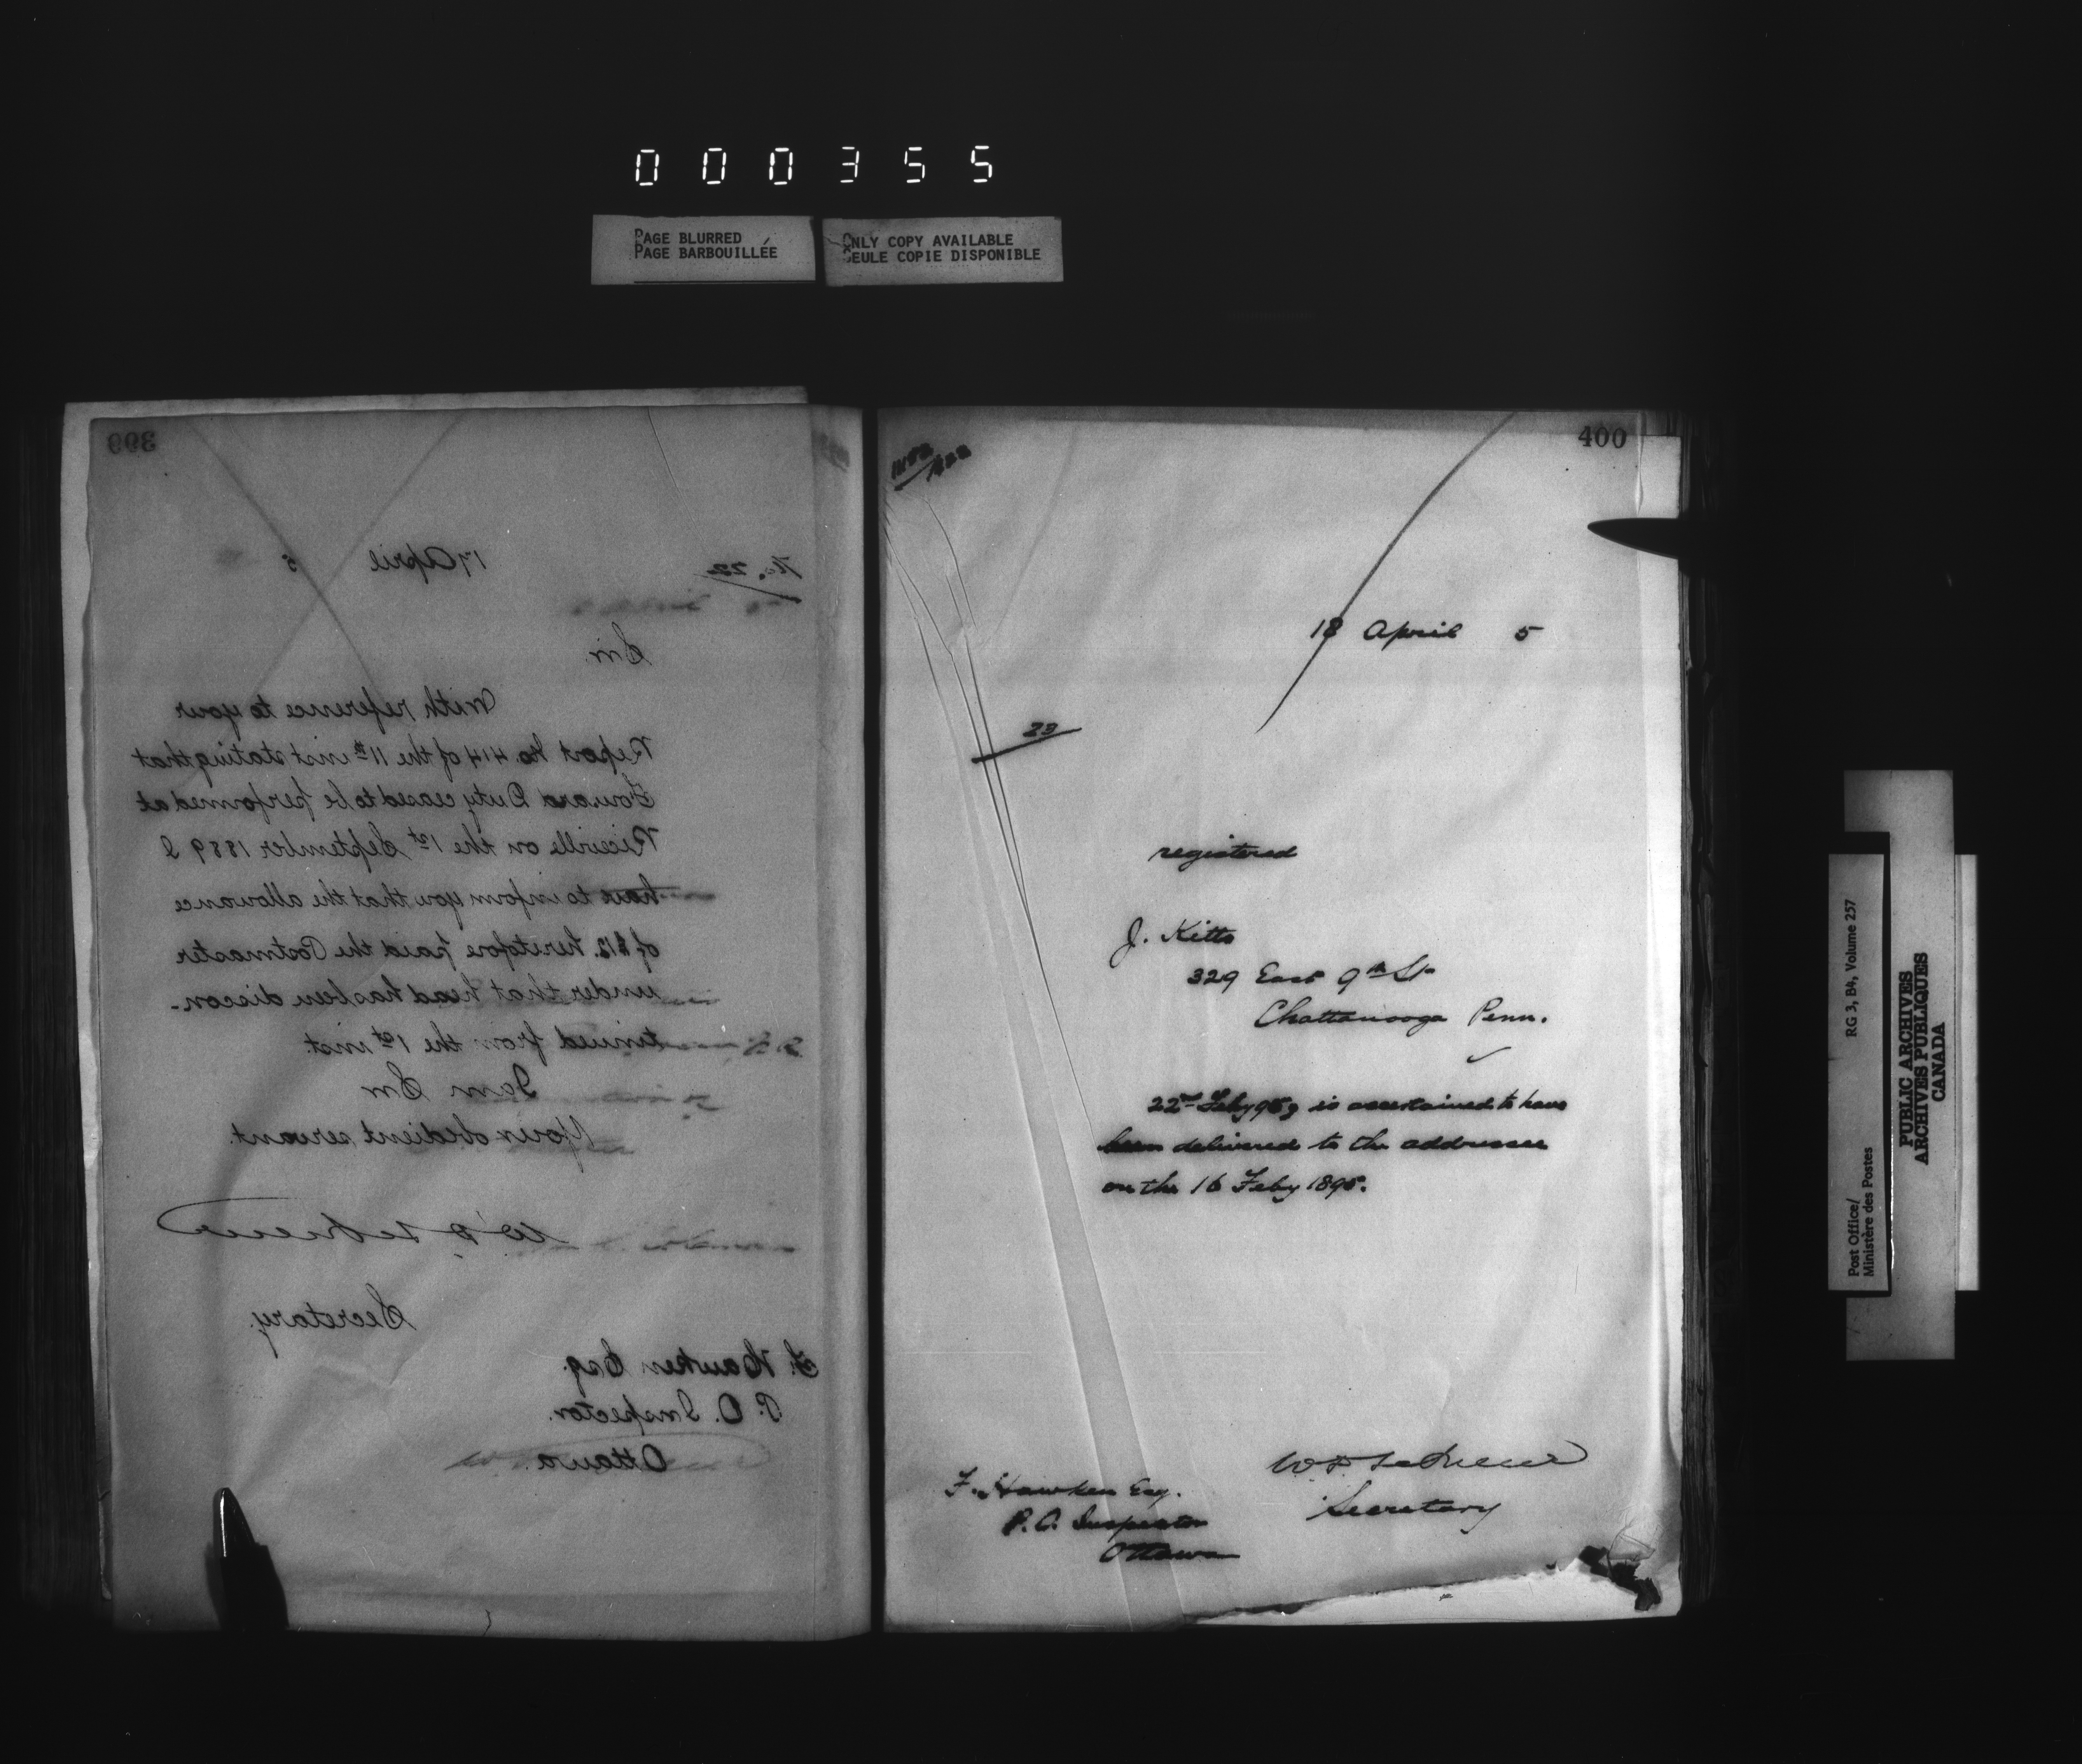 000355
PAGE BLURRED
PAGE BARBOUILLÉE
ONLY COPY AVAILABLE
SEULE COPIE DISPONIBLE
399
No. 22
17 April 5
Sir
With reference to your
Report No. 414 of the 11th inst stating that
Forward Duty ceased to be performed at
Riceville on the 1st September 1889 I
have to inform you that the allowance
of $12. heretofore paid the Postmaster
under that head has been discon-
tinued from the 1st inst.
I am Sir
Your obedient servant.
Secretary.
F. Hawken Esq.
P. O. Inspector.
Ottawa.
400
18 April 5
23
registered
J. Kitts
329 East 9th St
Chattanooga Penn.
22nd Feby is ascertained to have
been delivered to the addressee
on the 16 Feby 1895.
Secretary
F. Hawken Esq.
P. O. Inspector
Ottawa
Post Office/ RG 3, B4, Volume 257
Ministère des Postes
PUBLIC ARCHIVES
ARCHIVES PUBLIQUES
CANADA